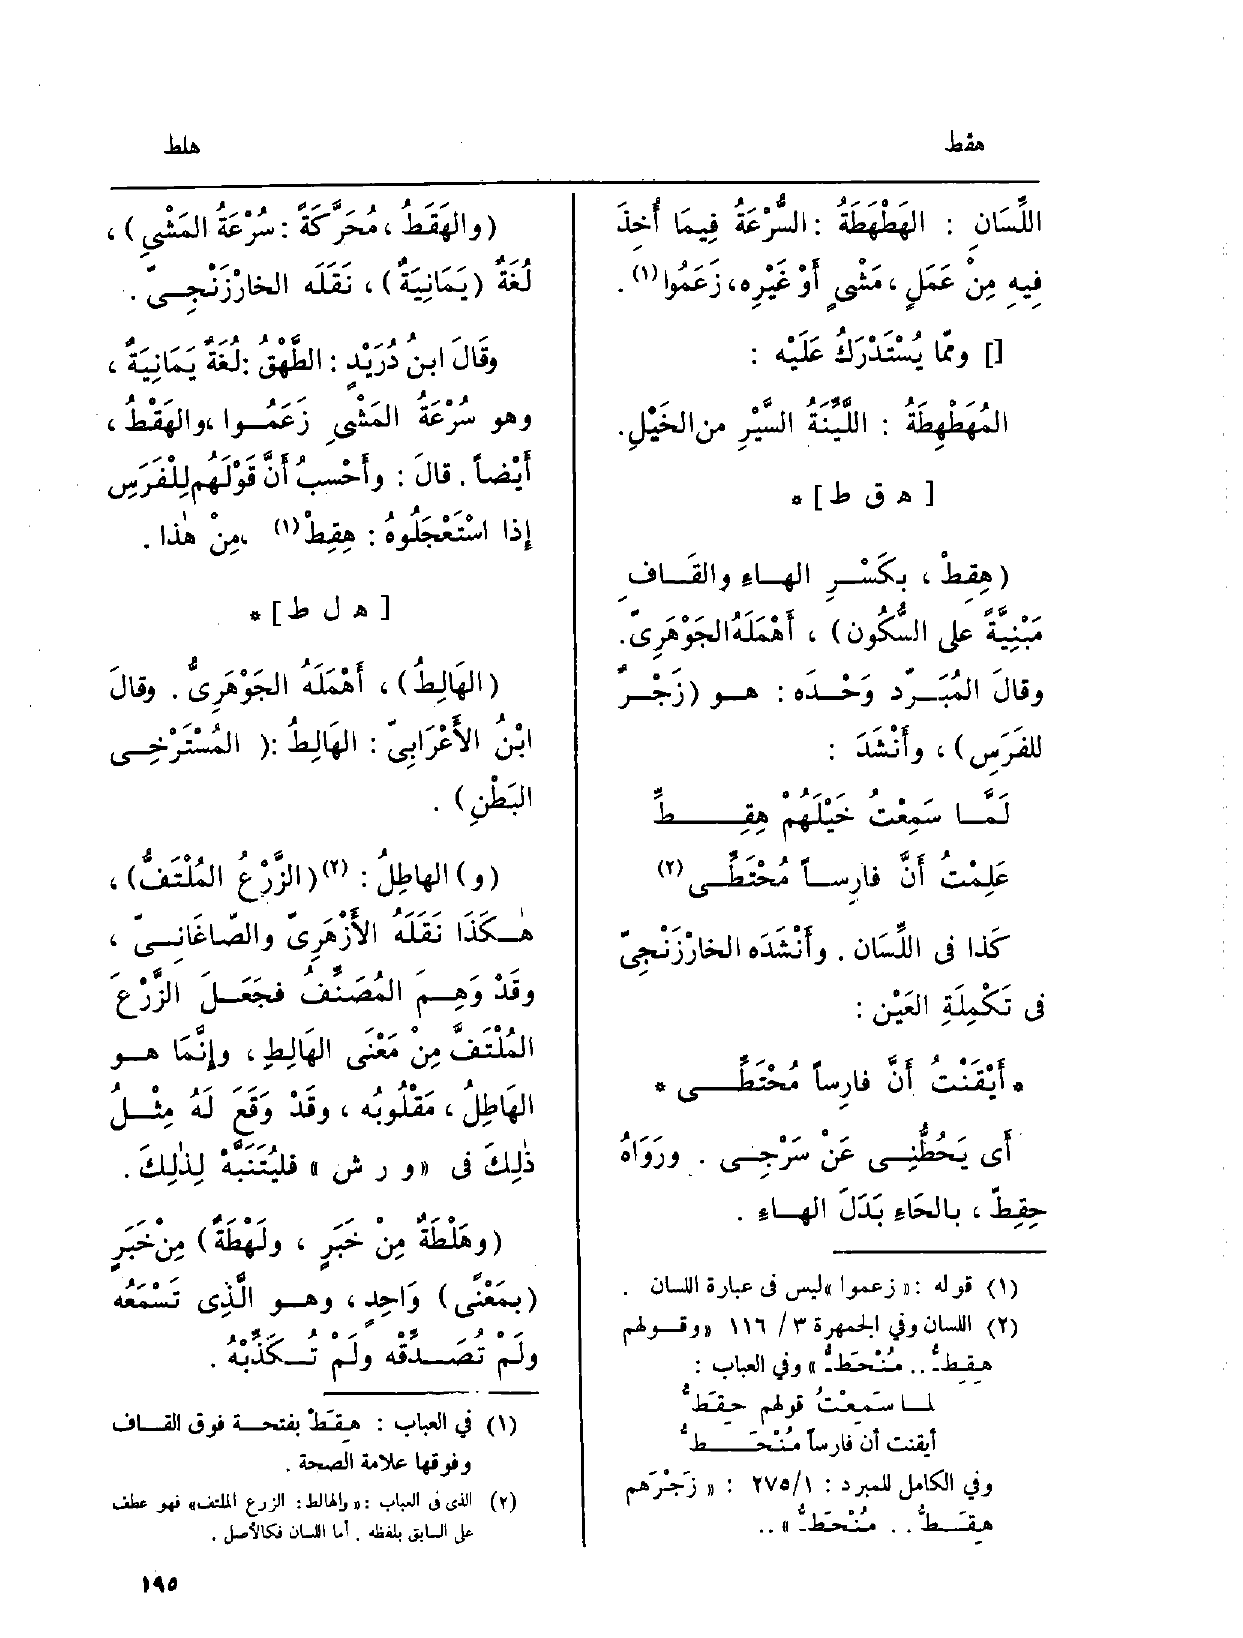 هقط
هلط
اللِّسَان : الهَطْهَطَةُ : السُّرْعَةُ فِيمَا أُخِذَ
فِيهِ مِنْ عَمَلٍ ، مَشْىٍ أَوْ غَيْرِه، زَعَمُوا(١) .
[] وممّا يُسْتَدْرَكُ عَلَيْه :
المُهَطْهِطَةُ : اللَّيِّنَةُ السَّيْرِ من الخَيْلِ.
[ ه ق ط ] *
(هِقِطْ ، بكَسْرِ الهاءِ والقَافِ
مَبْنِيَّةً على السُّكُون) ، أَهْمَلَهُ الجَوْهَرِىّ.
وقالَ المُبَرِّد وَحْدَه : هو (زَجْرٌ
للفَرَسِ) ، وأَنْشَدَ :
لَمَّا سَمِعْتُ خَيْلَهُمْ هِقِطِّ
عَلِمْتُ أَنَّ فارِساً مُحْتَطِّى (٢)
كَذا فى اللِّسَان . وأَنْشَدَه الخارْزَنْجِىّ
فى تَكْمِلَةِ العَيْن :
* أَيْقَنْتُ أَنَّ فارِساً مُحْتَطِّى *
أَى يَحُطُّنِى عَنْ سَرْجِى . ورَوَاهُ
حِقِطِّ ، بالحَاءِ بَدَلَ الهاءِ .
(١) قوله : « زعموا » ليس فى عبارة اللسان .
(٢) اللسان وفي الجمهرة ٣/ ١١٦ « وقولهم
هِقِطُّ .. مُنْحَطُّ » وفي العباب :
لما سَمِعْتُ قولهم حِقَطُّ
أيقنت أن فارساً مُنْحَطُّ
وفي الكامل للمبرد : ١/ ٢٧٥ : « زَجْرَهم
هِقَطُّ . . مُنْحَطُّ » ..
(والهَقَطُ ، مُحَرَّكَةً : سُرْعَةُ المَشْىِ) ،
لُغَةٌ (يَمَانِيَةٌ) ، نَقَلَه الخارْزَنْجِىّ .
وقَالَ ابنُ دُرَيْدٍ : الطَّهْقُ : لُغَةٌ يَمَانِيَةٌ ،
وهو سُرْعَةُ المَشْىِ زَعَمُوا ، والهَقْطُ ،
أَيْضاً . قالَ : وأَحْسِبُ أَنَّ قَوْلَهُم لِلْفَرَسِ
إِذا اسْتَعْجَلُوهُ : هِقِطْ(١) ، مِنْ هٰذا .
[ ه ل ط ] *
(الهَالِطُ) ، أَهْمَلَهُ الجَوْهَرِىُّ . وقالَ
ابْنُ الأَعْرَابِىّ : الهَالِطُ : ( المُسْتَرْخِى
البَطْنِ) .
(و) الهاطِلُ : (٢)(الزَّرْعُ المُلْتَفُّ) ،
هٰكَذَا نَقَلَهُ الأَزْهَرِىّ والصّاغَانِىّ ،
وقَدْ وَهِمَ المُصَنِّفُ فجَعَلَ الزَّرْعَ
المُلْتَفَّ مِنْ مَعْنَى الهَالِطِ ، وإِنَّمَا هو
الهَاطِلُ ، مَقْلُوبُه ، وقَدْ وَقَعَ لَهُ مِثْلُ
ذٰلِكَ فى «و ر ش » فليُتَنَبَّهْ لِذٰلِكَ .
(وهَلْطَةٌ مِنْ خَبَرٍ ، ولَهْطَةٌ) مِنْ خَبَرٍ
(بمَعْنًى) وَاحِدٍ ، وهو الَّذِى تَسْمَعُه
ولَمْ تُصَدِّقْه ولَمْ تُكَذِّبْهُ .
(١) في العباب : هِقَطْ بفتحة فوق القاف
وفوقها علامة الصحة .
(٢) الذى فى العباب : « والهالط : الزرع الملتف» فهو عطف
على السابق بلفظه . أما اللسان فكالأصل .
١٩٥